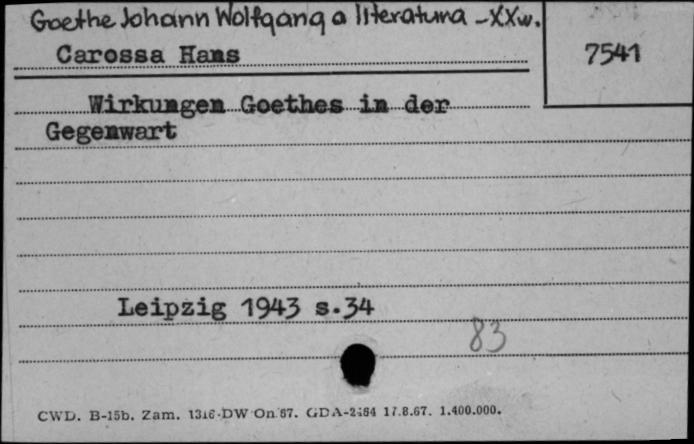 Goethe Johann Wolfgang a literatura - XXw.
Carossa Hans
7541
Wirkungen Goethes in der
Gegenwart
Leipzig 1943 s.34
83
CWD. B-15b. Zam. 1316-DW On 67. GDA-2484 17.8.67. 1.400.000.